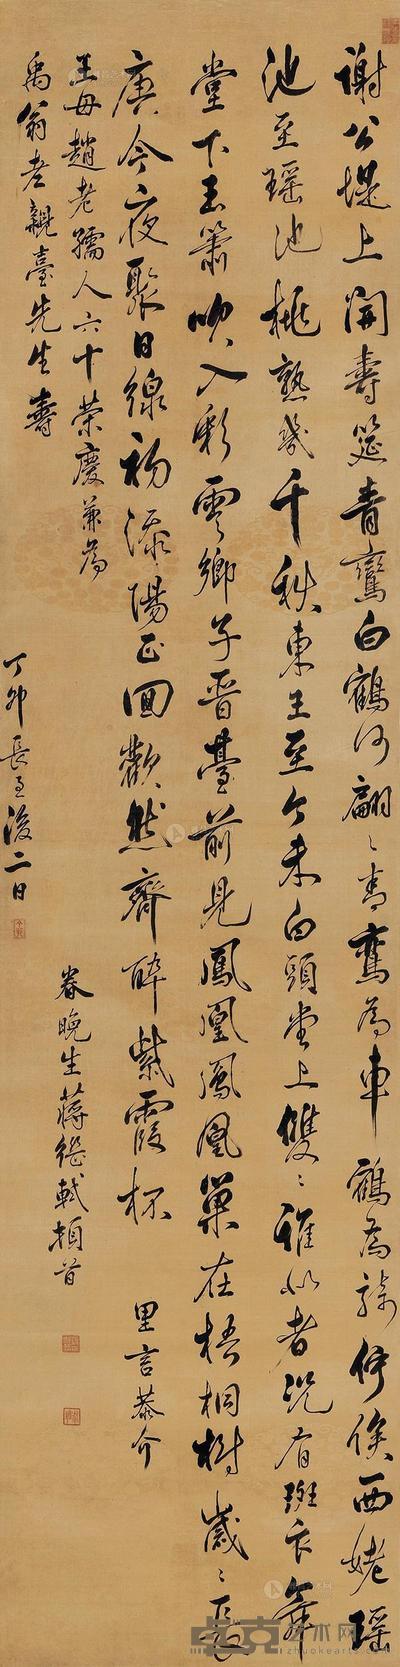 謝公堤上開壽筵青鸞白鶴何翩〻青鸞為車鶴為騎伊俟西姥瑶
池至瑶池桃熟幾千秋東王至今未白頭堂上雙〻誰似者況有斑衣舞
堂下玉簫吹入彩雲鄉子晋臺前見鳳凰鳳凰巢在梧桐樹歲〻長
庚今夜聚日線初添陽正回歡然齊醉紫霞杯
里言恭介
王母趙老孺人六十荣慶兼為
禹翁老親臺先生壽
丁卯長至後二日
眷晚生蔣繼軾頓首
卓克艺术网
www.zhuokearts.com